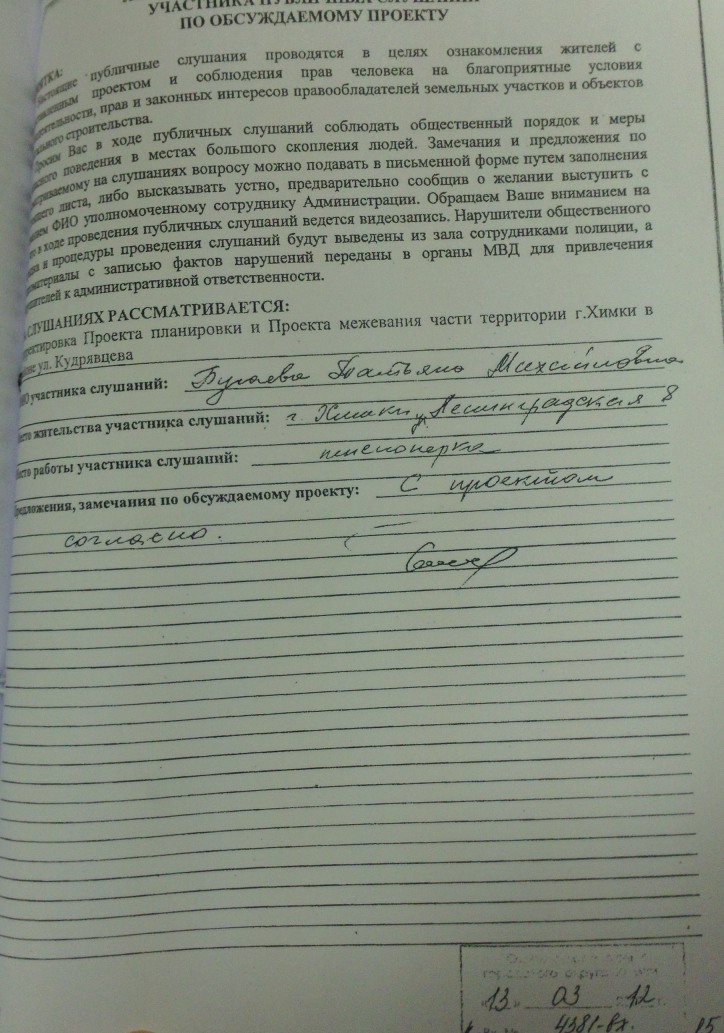 УЧАСТНИКА ПУБЛИЧНЫХ СЛУШАНИЙ
ПО ОБСУЖДАЕМОМУ ПРОЕКТУ
публичные слушания проводятся в целях ознакомления жителей с
проектом и соблюдения прав человека на благоприятные условия
прав и законных интересов правообладателей земельных участков и объектов
строительства.
Просим Вас в ходе публичных слушаний соблюдать общественный порядок и меры
поведения в местах большого скопления людей. Замечания и предложения по
на слушаниях вопросу можно подавать в письменной форме путем заполнения
листа, либо высказывать устно, предварительно сообщив о желании выступить с
ФИО уполномоченному сотруднику Администрации. Обращаем Ваше вниманием на
в ходе проведения публичных слушаний ведется видеозапись. Нарушители общественного
и процедуры проведения слушаний будут выведены из зала сотрудниками полиции, а
с записью фактов нарушений переданы в органы МВД для привлечения
к административной ответственности.
СЛУШАНИЯХ РАССМАТРИВАЕТСЯ:
Проекта планировки и Проекта межевания части территории г.Химки в
ул. Кудрявцева
участника слушаний: Татьяна Михайловна
жительства участника слушаний: г. Химки, ул. Ленинградская 8
работы участника слушаний: пенсионерка
замечания по обсуждаемому проекту: С проектом
согласна.
городского округа Химки
"13" 03 12
4381-вх.